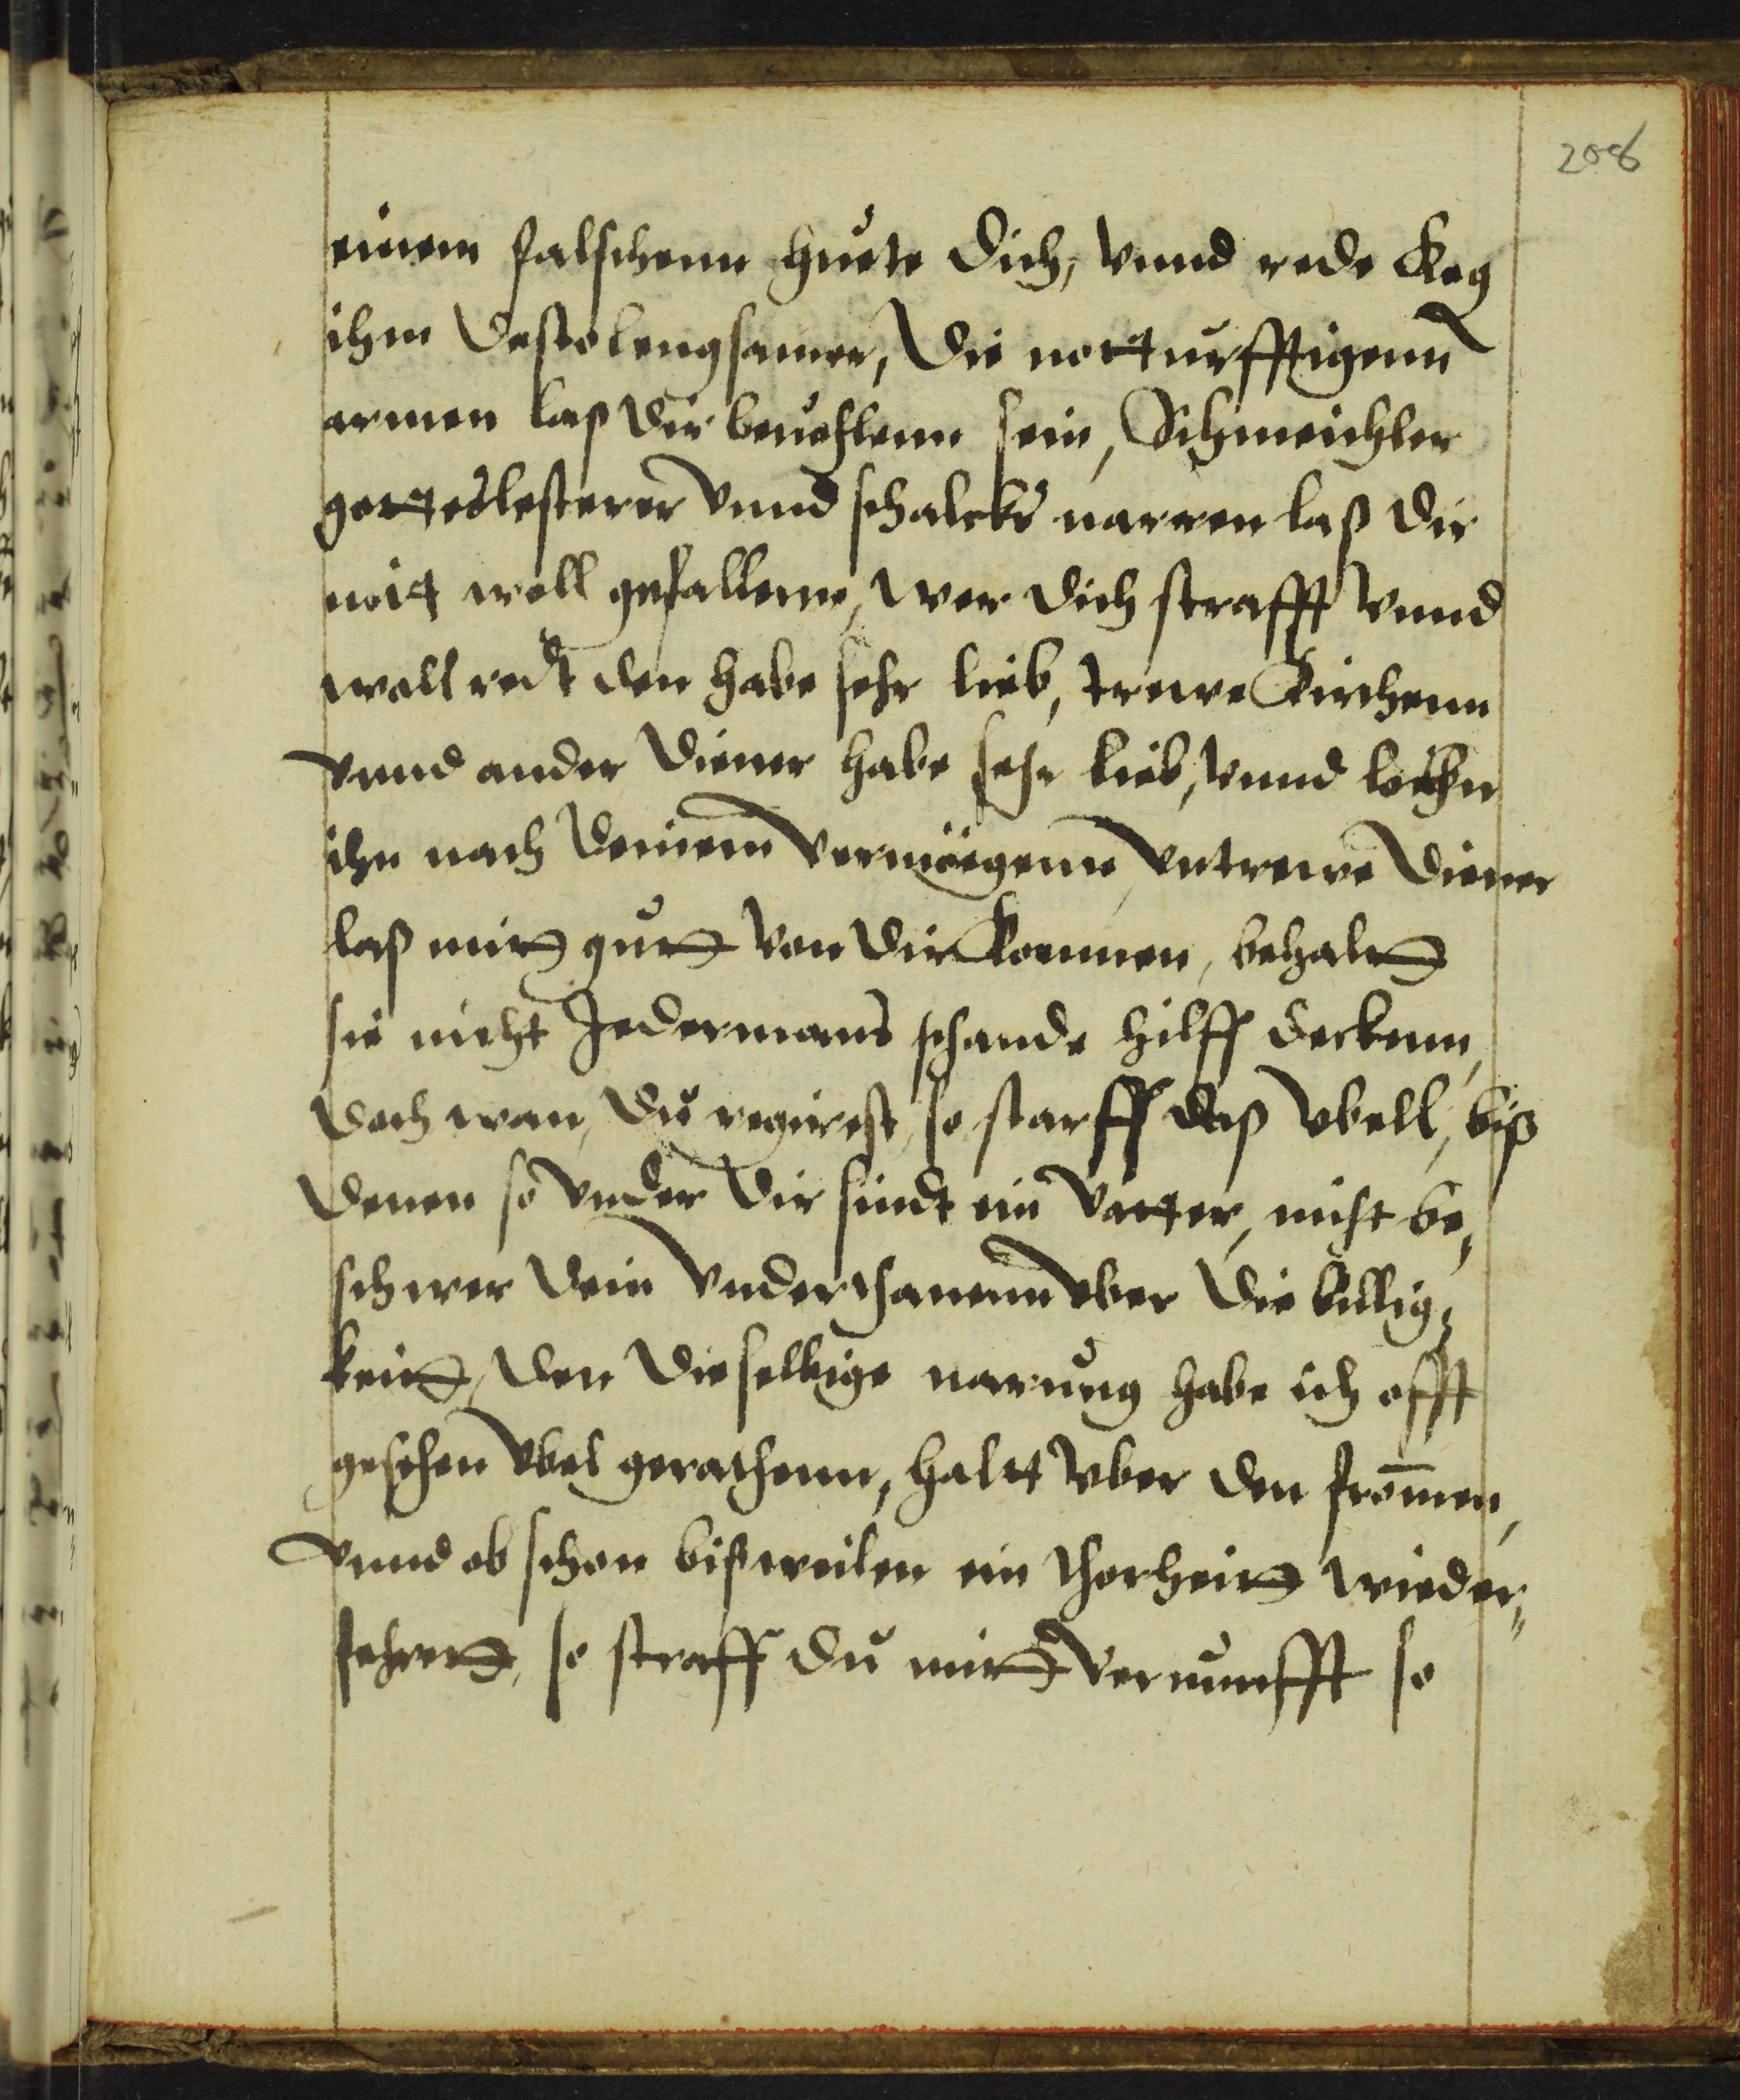 208
einem falschenn huete dich, vnnd rede keg
ihm desto lengsamer, die notturfftigenn
armen laß dir beuehlenn sein, Schmeichler
gotteslesterer vnnd schalcks narren laß dir
nit woll gefallenn, wer dich strafft vnnd
woll redt den habe sehr lieb, trewe kirchenn
vnnd ander diener habe sehr lieb, vnnd lohn
ihn nach deinem vermögenn, vntrewe diener
laß mit gutt von dir kommen, behalt
sie nicht Jedermans schande hilff deckenn,
doch wan, du regirest, so starff daß vbell, biß
denen so vnder dir sindt ein vatter, nicht be,
schwer dein vnderthanenn vber die billig,
keit, den dieselbige narung habe ich offt
gesehen vbel gerathenn, haltt vber den from̅en,
vnnd ob schon bißweilen ein thorheit wieder,
fehrt, so straff du mit vernunfft so